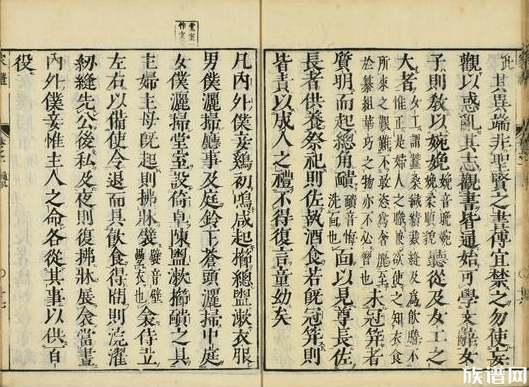 此其異端非聖賢之書傳宜禁之勿使妄
觀以惑亂其志觀書皆通始可學文辭女
子則教以婉娩娩音晚婉娩柔順貌聽從及女工之
大者女工謂蠶桑織績裁縫及為飲膳不惟正是婦人之職兼欲使之知衣食
所來之艱難不敢恣為奢麗至於纂組華巧之物亦不必習也未冠笄者
質明而起總角靧靧音悔洗面也面以見尊長佐
長者供養祭祀則佐執酒食若既冠笄則
皆責以成人之禮不得復言童幼矣
凡內外僕妾鷄初鳴咸起櫛總盥漱衣服
男僕灑掃廳事及庭鈴下蒼頭灑掃中庭
女僕灑掃堂室設倚卓陳盥漱櫛靧之具
主婦主母既起則拂牀襞襞音壁疊衣也衾侍立
左右以備使令退而具飲食得閒則浣濯
紉縫先公後私及夜則復拂牀展衾當晝
內外僕妾惟主人之命各從其事以供百
役
族谱网